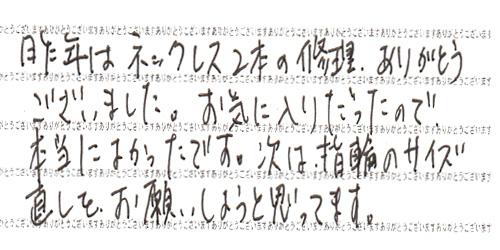 昨年はネックレス2本の修理、ありがとう
ございました。お気に入りだったので
本当によかったです。次は、指輪のサイズ
直しを、お願いしようと思ってます。